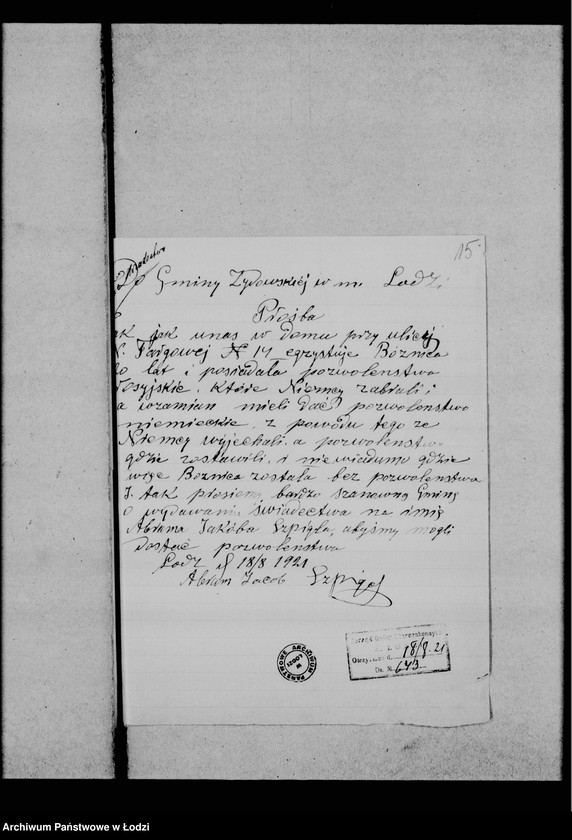 15
Do Gminy Zydowskiéj w m. Lodzi
Prośba
ak jak unas w domu przy uliciej
N. Targowej № 14 egzystuje Bóznica
lat i posiadała pozwolenstwo
rosyjskie. Które Niemcy zabrali i
a wzamian mieli dać pozwolenstwo
niemieckie, z powodu tego ze
Niemcy wyjechali. a pozwolenstwo
gdzie zostawili. i niewiadomo gdzie
więc Boznica została bez pozwolenstwa
I tak prosiemy bardzo szanowną Gminę
o wydawanie świadectwa na imię
Abrama Jakóba Szpigla, abyśmy mogli
dostać pozwolenstwa
Lodz d 18/8 1921
Abram Jacob Szpigel
ARCHIWUM PAŃSTWOWE W ŁODZI
Otrzymano d. 18/8. 21
Dz. N. 643
Archiwum Państwowe w Łodzi